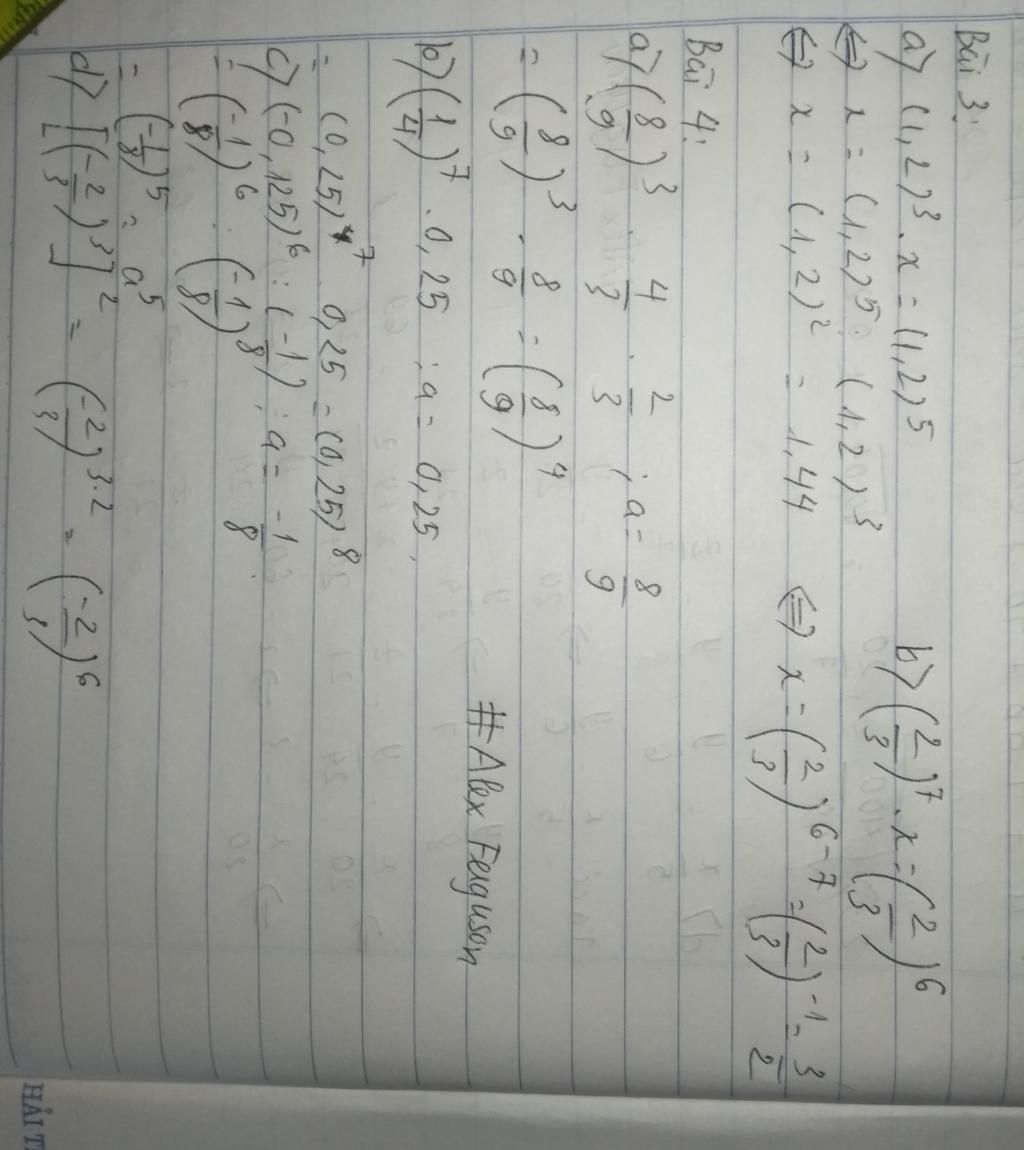 Bài 3:
a) (1,2)³ . x = (1,2)⁵
⇔ x = (1,2)⁵ : (1,2)³
⇔ x = (1,2)² = 1,44
b) (2/3)⁷ . x = (2/3)⁶
⇔ x = (2/3)⁶⁻⁷ = (2/3)⁻¹ = 3/2
Bài 4:
a) (8/9)³ . 4/3 . 2/3 ; a = 8/9
= (8/9)³ . 8/9 = (8/9)⁴
b) (1/4)⁷ . 0,25 ; a = 0,25.
= (0,25)⁷ . 0,25 = (0,25)⁸
c) (-0,125)⁶ : (-1/8) ; a = -1/8
= (-1/8)⁶ : (-1/8)
= (-1/8)⁵ = a⁵
d) [(-2/3)³]² = (-2/3)³·² = (-2/3)⁶
#Alex Ferguson
HẢI T